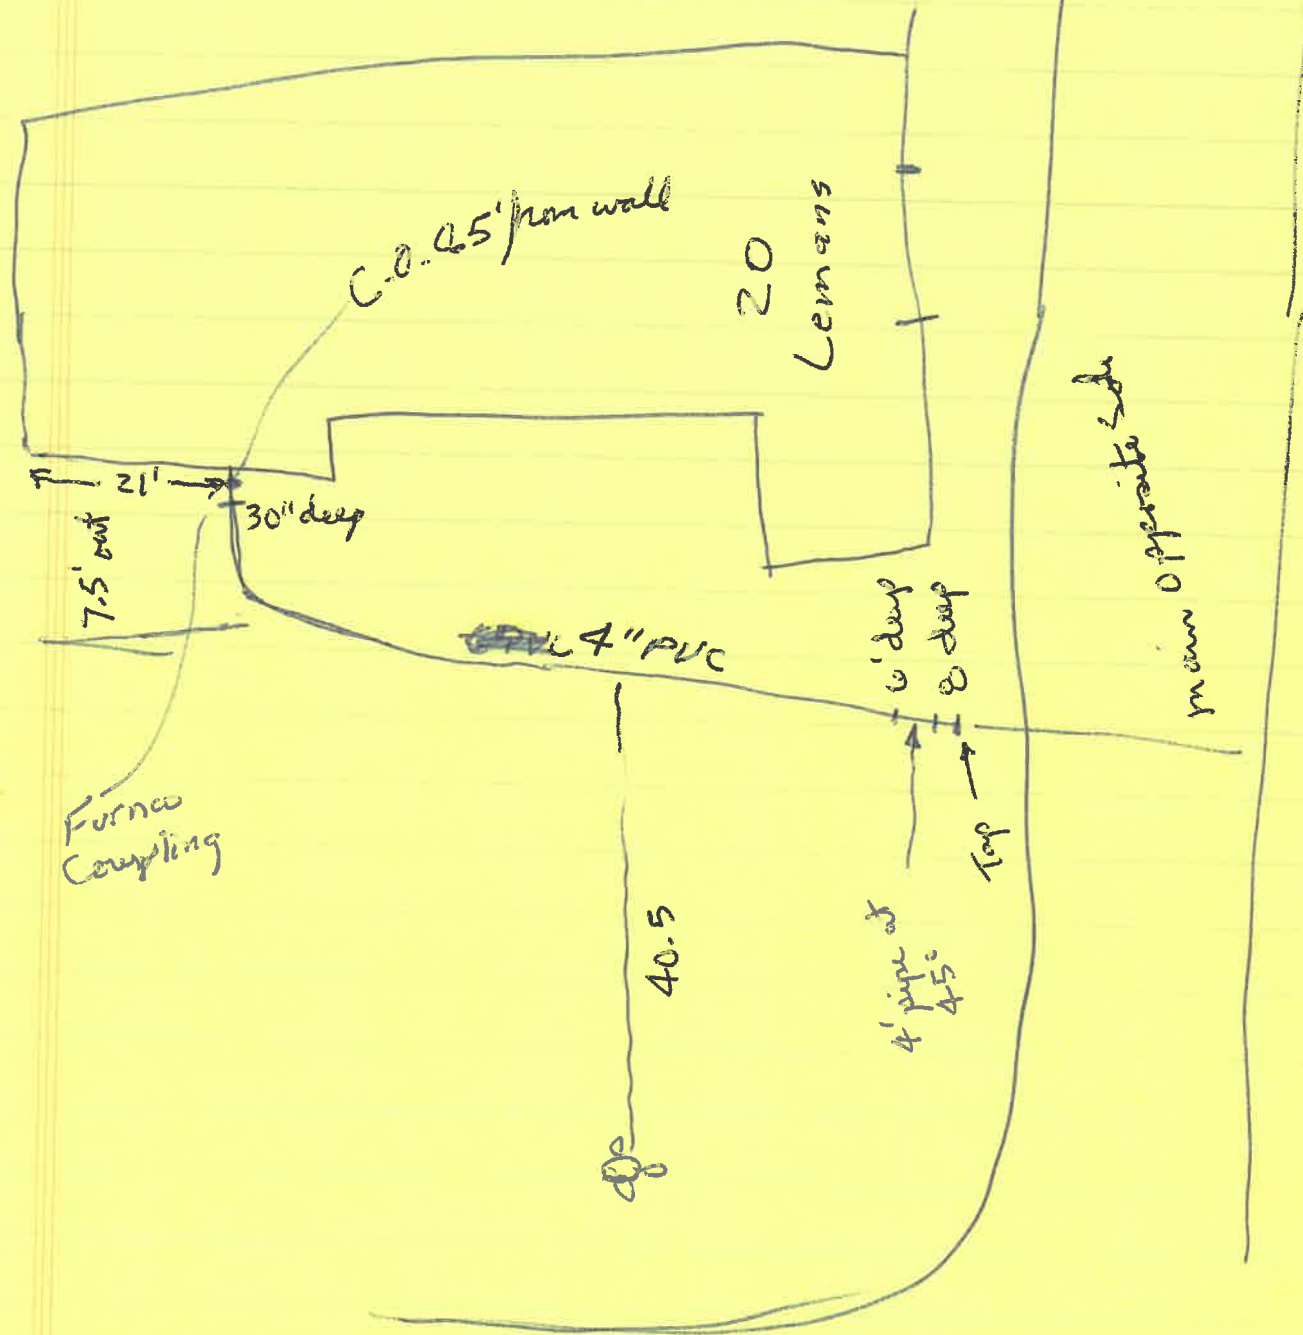 C.O. 45' from wall
20
Lemans
21'
30" deep
7.5' out
4" PVC
6' deep
8 deep
main opposite Side
Furnco
Coupling
Tap
40.5
4' pipe at
45°